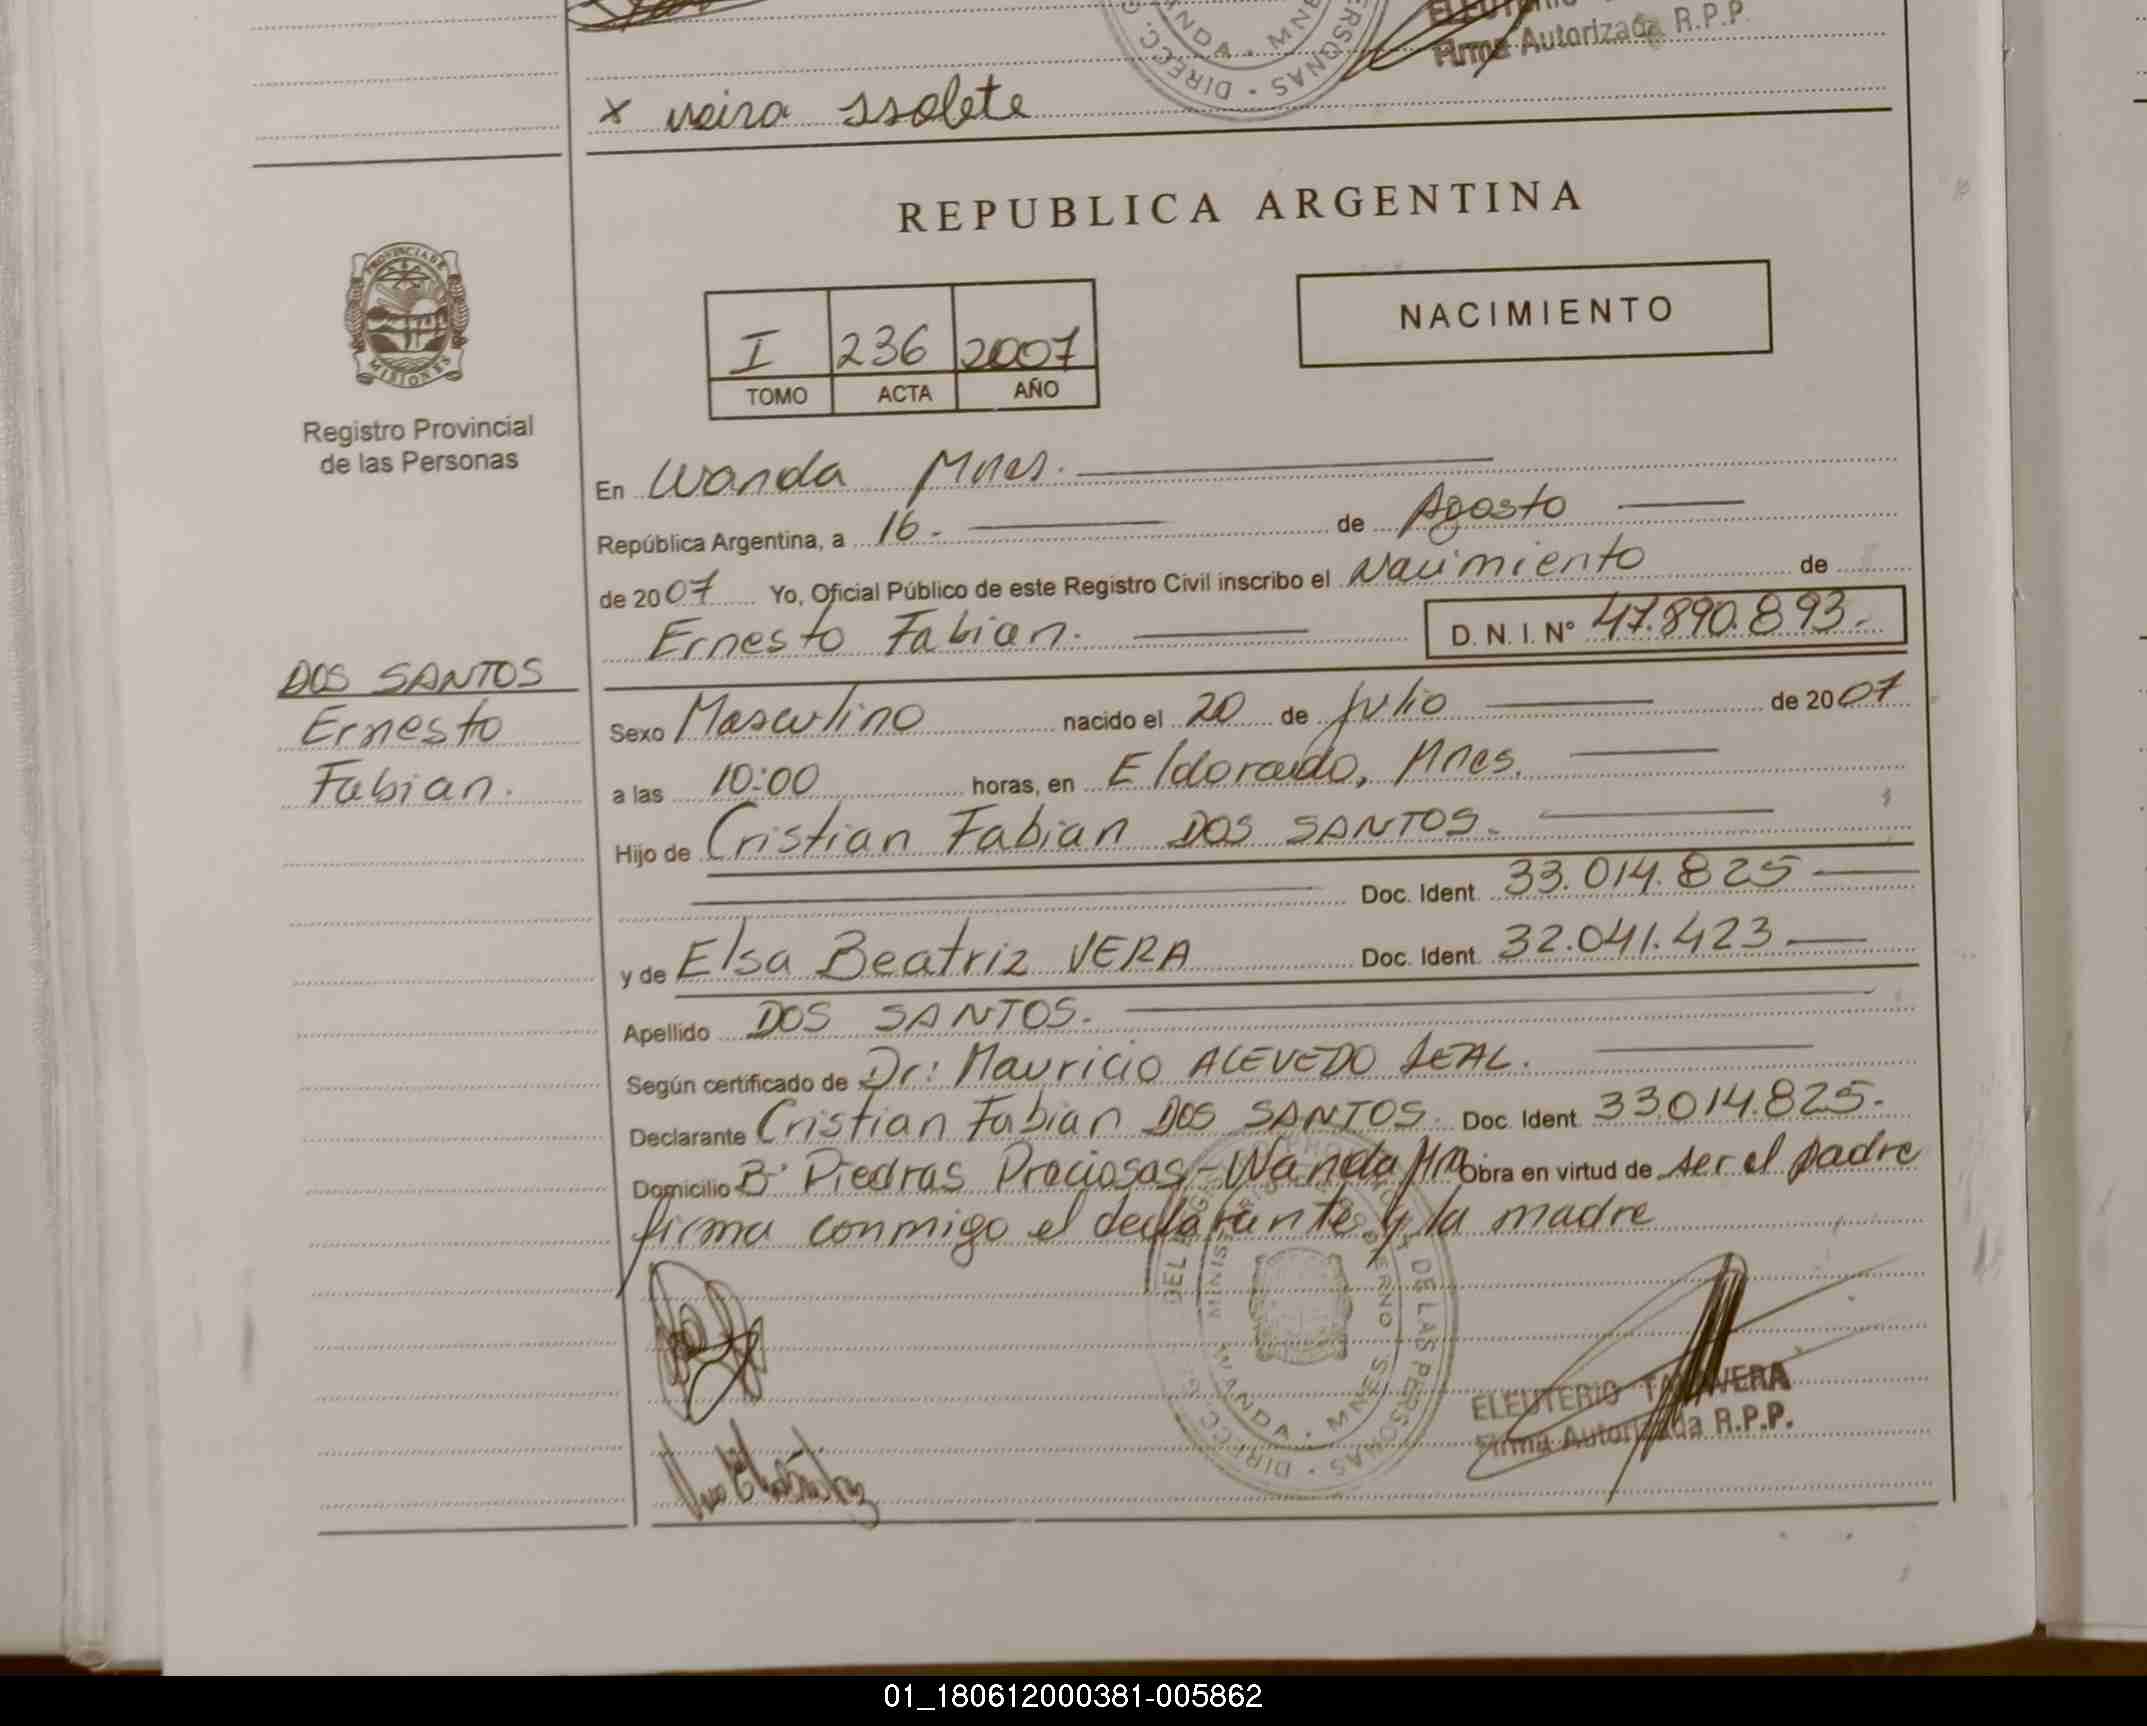 Firma Autorizada R.P.P.
DIRECC. G
ERSONAS
NDA · MN
x neira Isolete
REPUBLICA ARGENTINA
PROVINCIA DE
MISIONES
Registro Provincial
de las Personas
I 236 2007
TOMO ACTA AÑO
NACIMIENTO
En Wanda Mnes.
República Argentina, a 16. de Agosto
de 2007 Yo, Oficial Público de este Registro Civil inscribo el Nacimiento de
Ernesto Fabian. D. N. I. Nº 47.890.893.
DOS SANTOS
Ernesto
Fabian.
Sexo Masculino nacido el 20 de Julio de 2007
a las 10:00 horas, en Eldorado, Mnes.
Hijo de Cristian Fabian DOS SANTOS.
Doc. Ident. 33.014.825
y de Elsa Beatriz VERA Doc. Ident. 32.041.423
Apellido DOS SANTOS.
Según certificado de Dr: Mauricio ACEVEDO LEAL.
Declarante Cristian Fabian DOS SANTOS. Doc. Ident. 33.014.825.
Domicilio Bº Piedras Preciosas - Wanda Mn Obra en virtud de ser el padre
firma conmigo el declarante y la madre
DE LAS PERSONAS · DIRECC. G
WANDA · MNES.
ELEUTERIO TALAVERA
Firma Autorizada R.P.P.
01_180612000381-005862